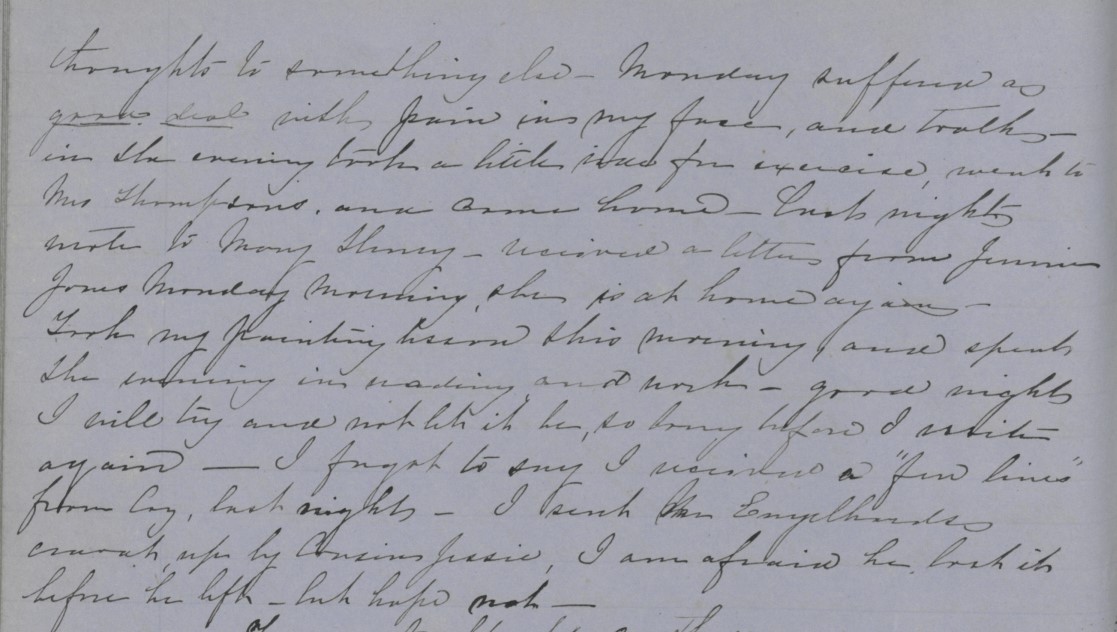 thoughts to something else – Monday suffered a
good deal with pain in my face, and tooth –
in the evening took a little for exercise, went to
Mrs Thompsons, and came home – Last night
wrote to Mary Henry – received a letter from Jennie
Jones Monday morning, she is at home again –
Took my painting lesson this morning, and spent
the evening in reading, and work – good night
I will try and not let it be, so long before I write
again — I forgot to say I received a "few lines"
from Coz, last night – I sent Engelhards
cravat, up by Cousin Jessie, I am afraid he lost it
before he left – but hope not —